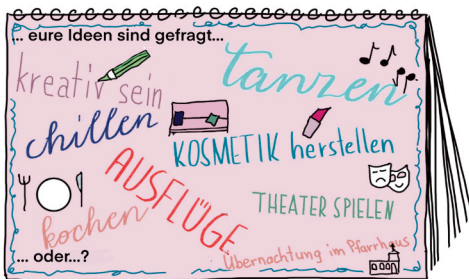 ... eure Ideen sind gefragt...
kreativ sein
tanzen
chillen
KOSMETIK herstellen
AUSFLÜGE
THEATER SPIELEN
kochen
Übernachtung im Pfarrhaus
... oder...?